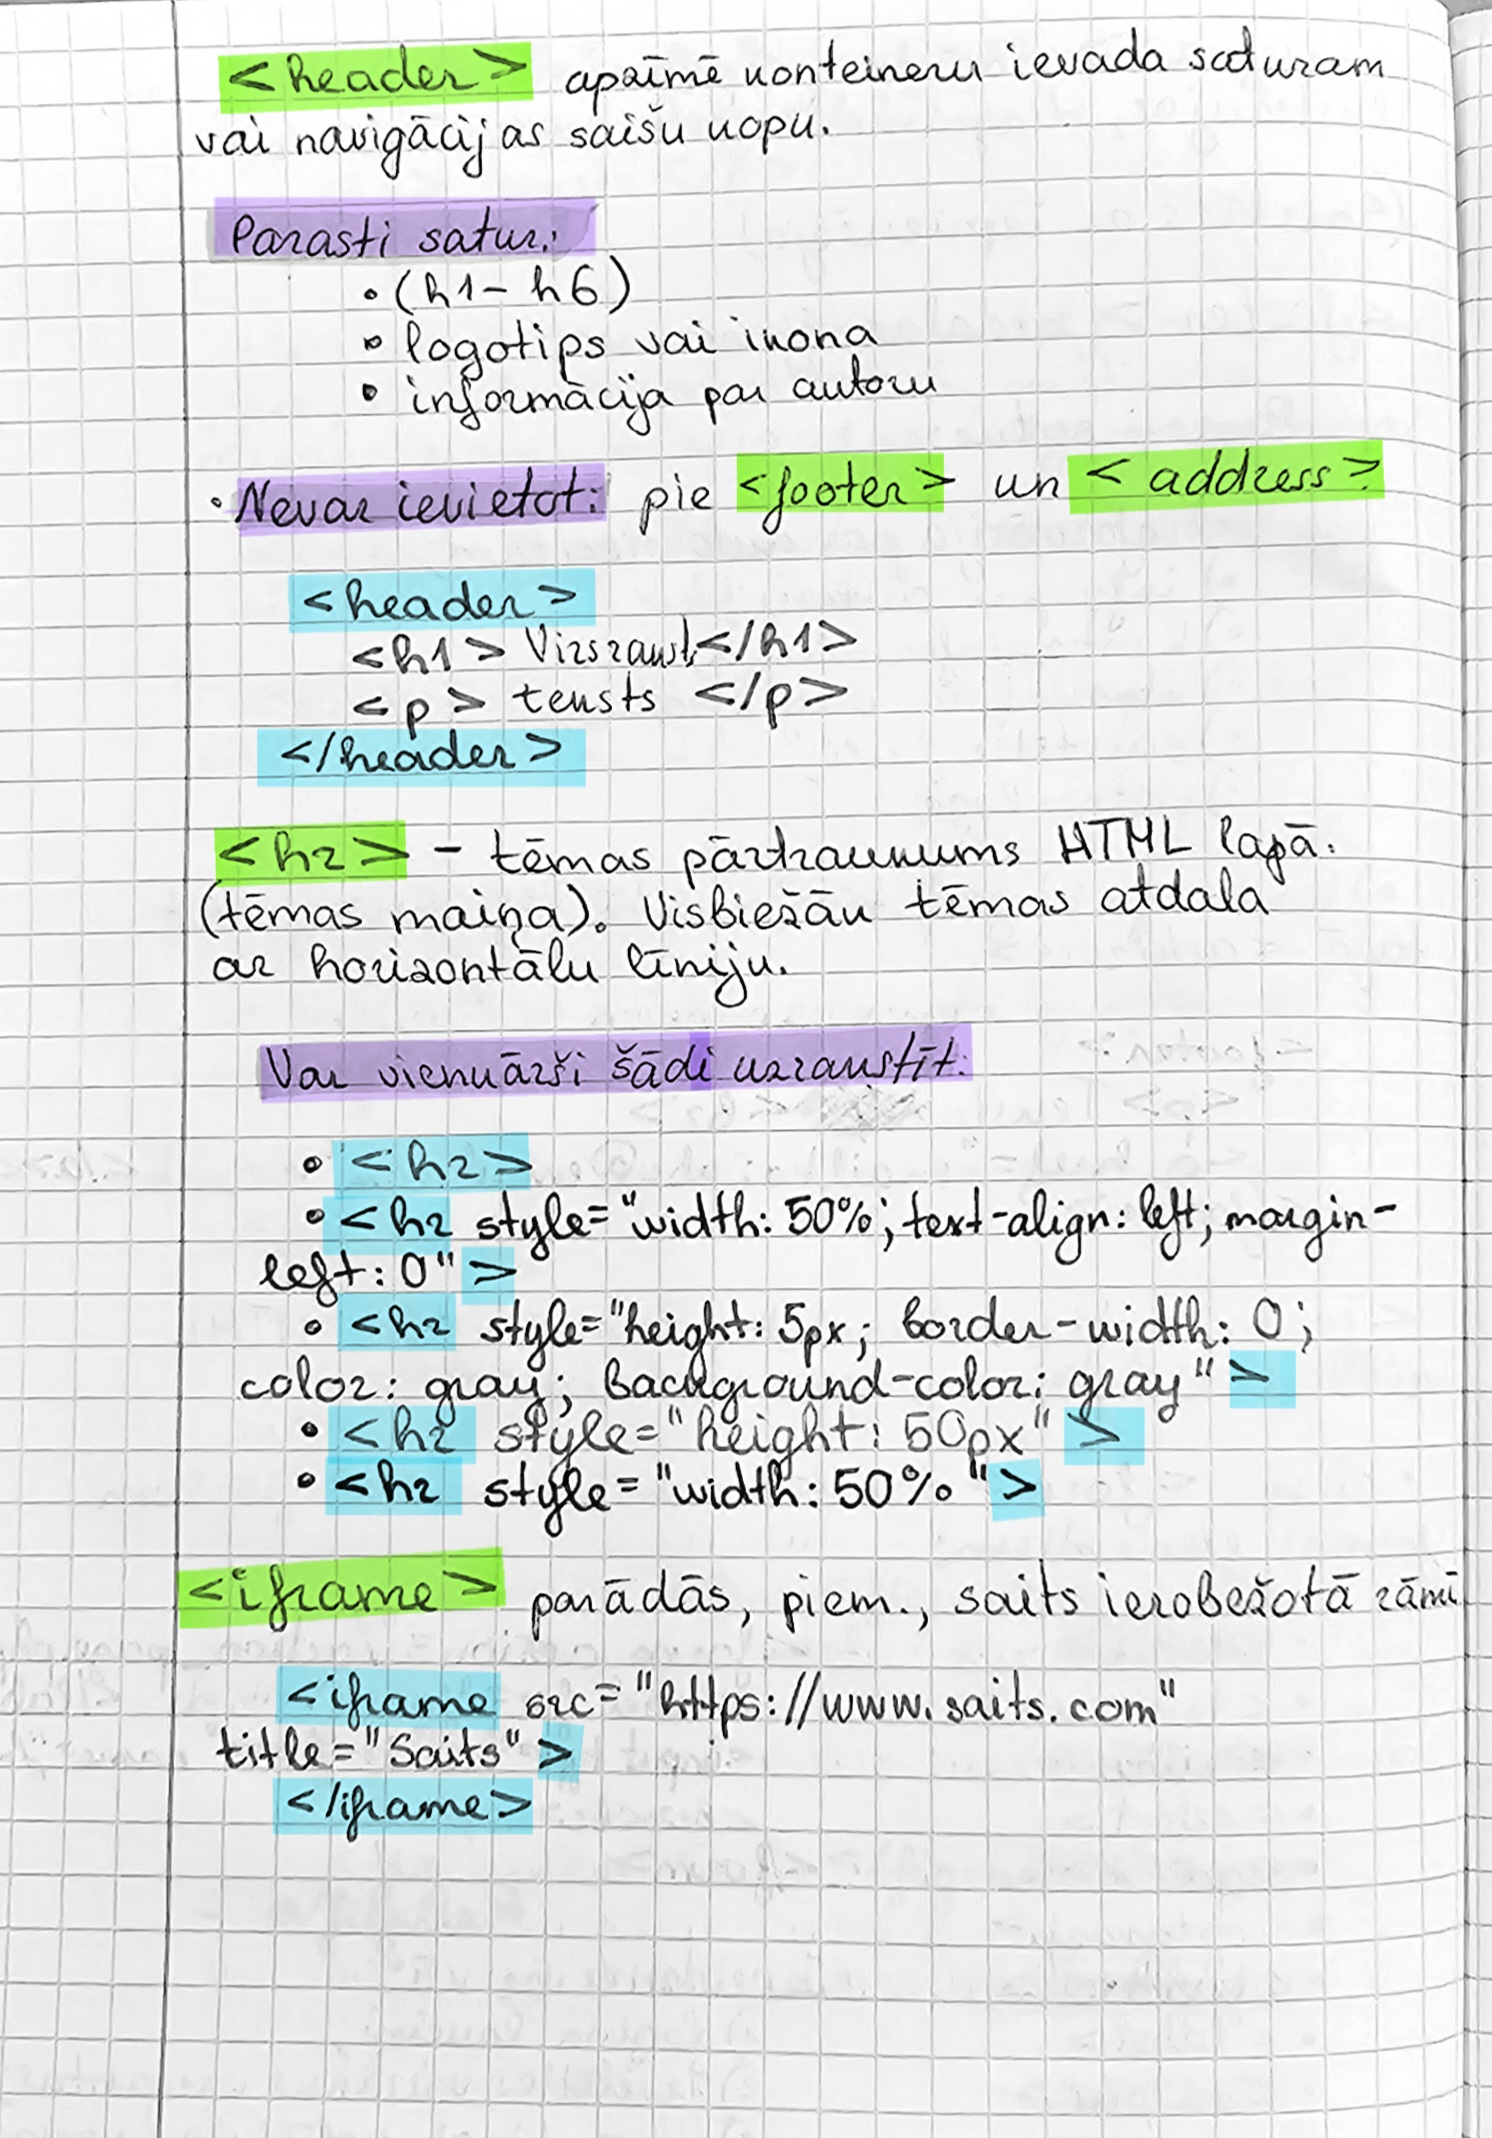 <header> apzīmē konteineru ievada saturam
vai navigācijas saišu kopu.
Parasti satur:
• (h1 - h6)
• logotips vai ikona
• informācija par autoru
• Nevar ievietot: pie <footer> un <address>
<header>
<h1> Virsrakst </h1>
<p> teksts </p>
</header>
<hr> - tēmas pārtraukums HTML lapā.
(tēmas maiņa). Visbiežāk tēmas atdala
ar horizontālu līniju.
Var vienkārši šādi uzrakstīt:
• <hr>
• <hr style="width: 50%; text-align: left; margin-
left: 0">
• <hr style="height: 5px; border-width: 0;
color: gray; background-color: gray">
• <hr style="height: 50px">
• <hr style="width: 50%">
<iframe> parādās, piem., saits ierobežotā rāmī
<iframe src="https://www.saits.com"
title="Saits">
</iframe>